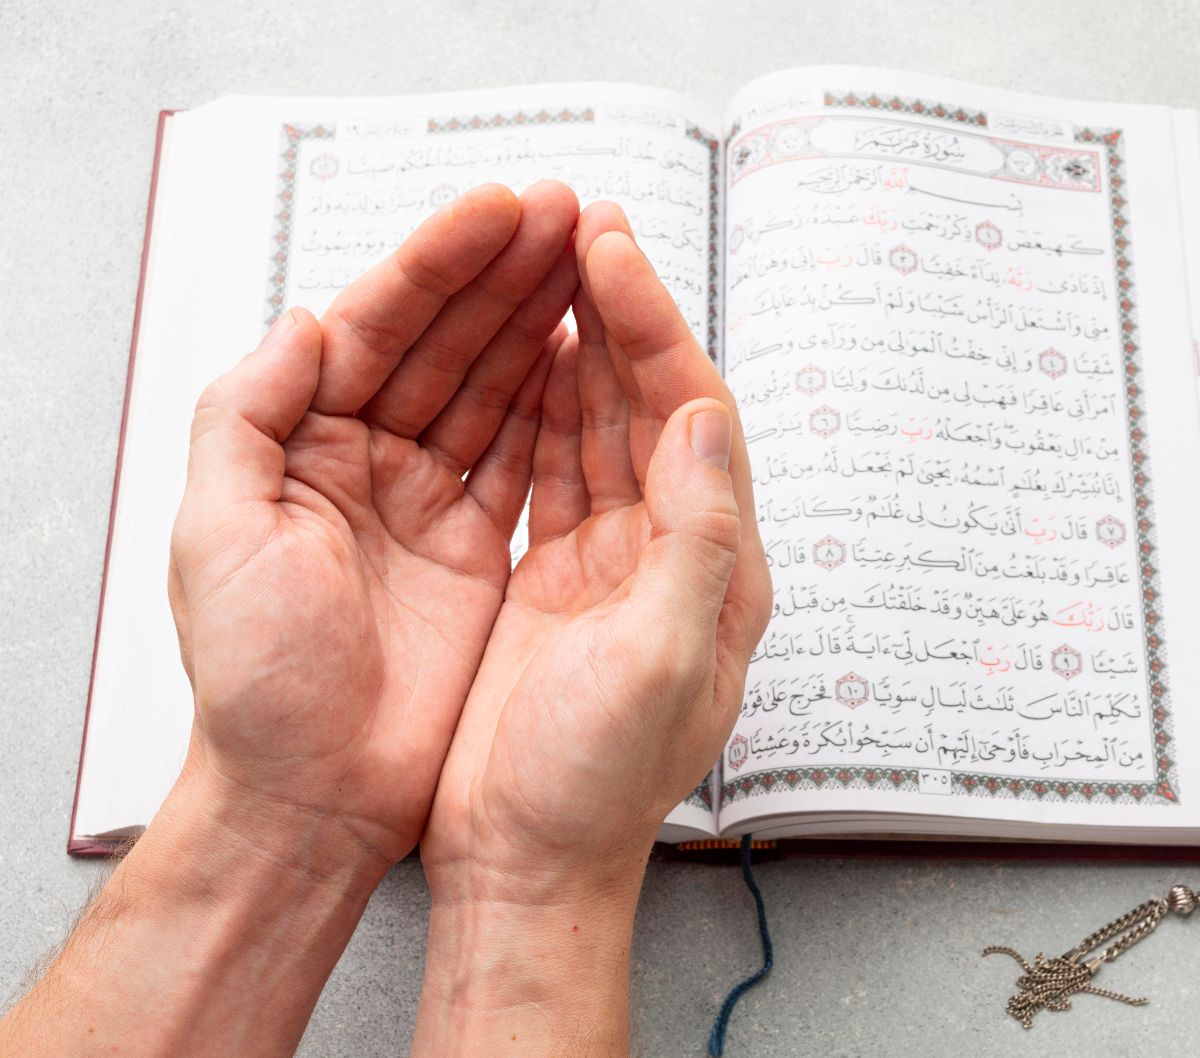 سُورَةُ مَرْيَمَ
بِسْمِ ٱللَّهِ ٱلرَّحْمَٰنِ ٱلرَّحِيمِ
كٓهيعٓصٓ ١ ذِكْرُ رَحْمَتِ رَبِّكَ عَبْدَهُۥ زَكَرِيَّآ
إِذْ نَادَىٰ رَبَّهُۥ نِدَآءً خَفِيًّا ٣ قَالَ رَبِّ إِنِّى وَهَنَ
مِنِّى وَٱشْتَعَلَ ٱلرَّأْسُ شَيْبًا وَلَمْ أَكُنۢ بِدُعَآئِكَ
شَقِيًّا ٤ وَإِنِّى خِفْتُ ٱلْمَوَٰلِىَ مِن وَرَآءِى وَكَانَتِ
ٱمْرَأَتِى عَاقِرًا فَهَبْ لِى مِن لَّدُنكَ وَلِيًّا ٥ يَرِثُنِى
مِنْ ءَالِ يَعْقُوبَ ۖ وَٱجْعَلْهُ رَبِّ رَضِيًّا ٦
إِنَّا نُبَشِّرُكَ بِغُلَٰمٍ ٱسْمُهُۥ يَحْيَىٰ لَمْ نَجْعَل لَّهُۥ مِن قَبْلُ
٧ قَالَ رَبِّ أَنَّىٰ يَكُونُ لِى غُلَٰمٌ وَكَانَتِ
عَاقِرًا وَقَدْ بَلَغْتُ مِنَ ٱلْكِبَرِ عِتِيًّا ٨ قَالَ
قَالَ رَبُّكَ هُوَ عَلَىَّ هَيِّنٌ وَقَدْ خَلَقْتُكَ مِن قَبْلُ
شَيْـًٔا ٩ قَالَ رَبِّ ٱجْعَل لِّىٓ ءَايَةً ۚ قَالَ ءَايَتُكَ
تُكَلِّمَ ٱلنَّاسَ ثَلَٰثَ لَيَالٍ سَوِيًّا ١٠ فَخَرَجَ عَلَىٰ
مِنَ ٱلْمِحْرَابِ فَأَوْحَىٰٓ إِلَيْهِمْ أَن سَبِّحُوا۟ بُكْرَةً وَعَشِيًّا ١١
٣٠٥
يَٰيَحْيَىٰ خُذِ ٱلْكِتَٰبَ بِقُوَّةٍ ۖ وَءَاتَيْنَٰهُ ٱلْحُكْمَ صَبِيًّا ١٢
وَحَنَانًا مِّن لَّدُنَّا ١٣ وَبَرًّۢا بِوَٰلِدَيْهِ وَلَمْ
يَكُن
وَيَوْمَ يَمُوتُ